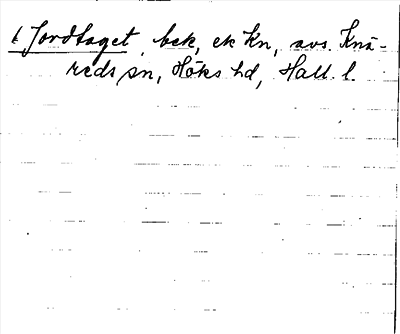 1 Jordtaget, bek, ek Kn, avs. Knä-
reds sn, Höks hd, Hall. l.